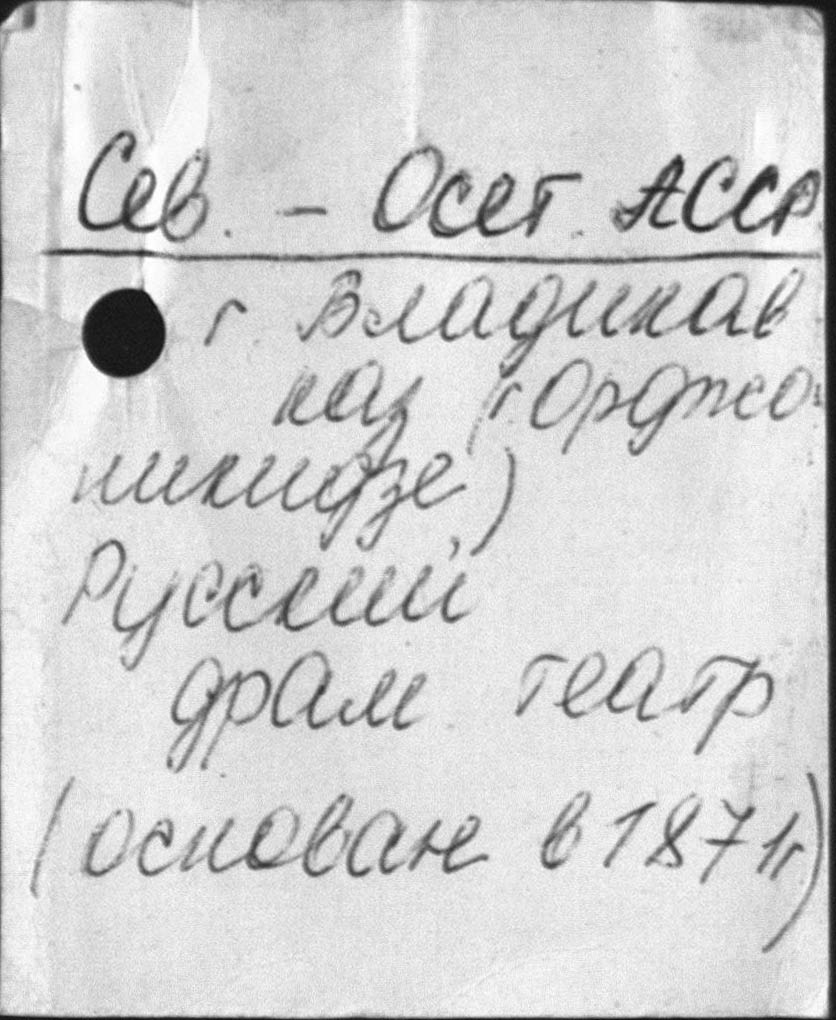 Сев. - Осет. АССР
г. Владикав
каз (г. Орджо-
никидзе)
Русский
драм. театр
(основан в 1871г.)